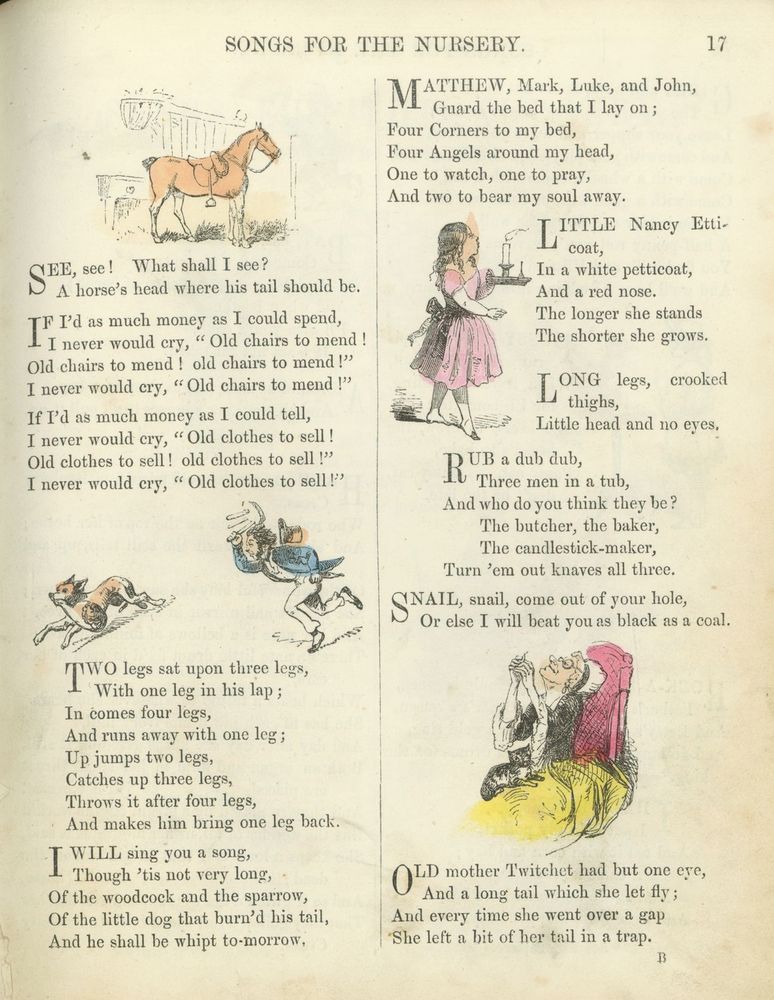 SONGS FOR THE NURSERY.
17
SEE, see! What shall I see?
A horse's head where his tail should be.
IF I'd as much money as I could spend,
I never would cry, "Old chairs to mend!
Old chairs to mend! old chairs to mend!"
I never would cry, "Old chairs to mend!"
If I'd as much money as I could tell,
I never would cry, "Old clothes to sell!
Old clothes to sell! old clothes to sell!"
I never would cry, "Old clothes to sell!"
TWO legs sat upon three legs,
With one leg in his lap;
In comes four legs,
And runs away with one leg;
Up jumps two legs,
Catches up three legs,
Throws it after four legs,
And makes him bring one leg back.
I WILL sing you a song,
Though 'tis not very long,
Of the woodcock and the sparrow,
Of the little dog that burn'd his tail,
And he shall be whipt to-morrow.
MATTHEW, Mark, Luke, and John,
Guard the bed that I lay on;
Four Corners to my bed,
Four Angels around my head,
One to watch, one to pray,
And two to bear my soul away.
LITTLE Nancy Etti-
coat,
In a white petticoat,
And a red nose.
The longer she stands
The shorter she grows.
LONG legs, crooked
thighs,
Little head and no eyes.
RUB a dub dub,
Three men in a tub,
And who do you think they be?
The butcher, the baker,
The candlestick-maker,
Turn 'em out knaves all three.
SNAIL, snail, come out of your hole,
Or else I will beat you as black as a coal.
OLD mother Twitchet had but one eye,
And a long tail which she let fly;
And every time she went over a gap
She left a bit of her tail in a trap.
B